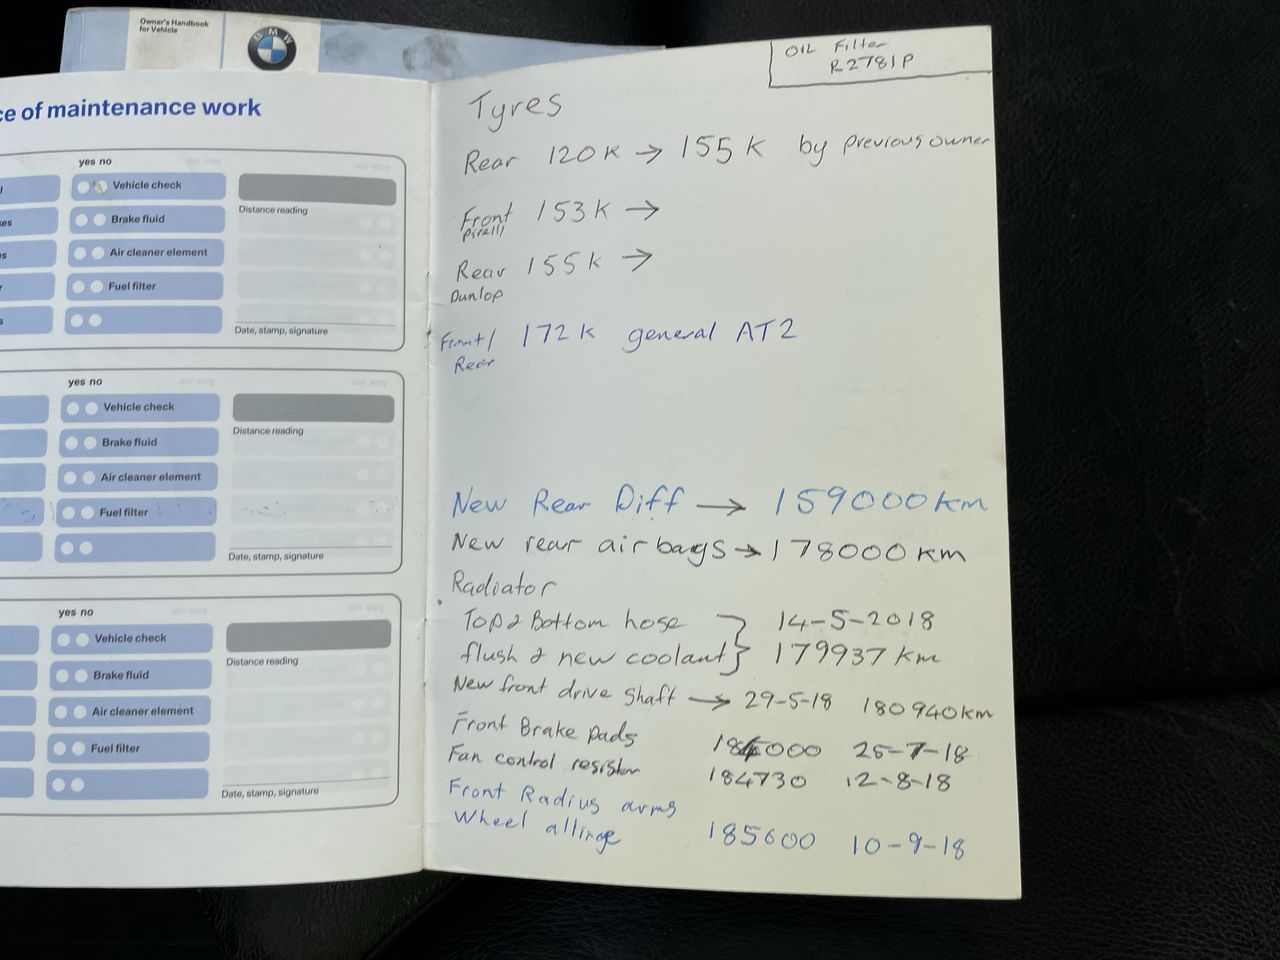 Owner's Handbook
for Vehicle
BMW
ce of maintenance work
yes no
Vehicle check
Brake fluid
Air cleaner element
Fuel filter
Distance reading
Date, stamp, signature
yes no
Vehicle check
Brake fluid
Air cleaner element
Fuel filter
Distance reading
Date, stamp, signature
yes no
Vehicle check
Brake fluid
Air cleaner element
Fuel filter
Distance reading
Date, stamp, signature
OIL Filter
R2781P
Tyres
Rear 120K → 155K by previous owner
Front 153K →
Pirelli
Rear 155K →
Dunlop
Front/ 172K general AT2
Rear
New Rear Diff → 159000km
New rear airbags → 178000km
Radiator
Top & Bottom hose } 14-5-2018
flush & new coolant } 179937 km
New front drive shaft → 29-5-18 180940km
Front Brake pads 184000 25-7-18
Fan control resistor 184730 12-8-18
Front Radius arms
Wheel 185600 10-9-18